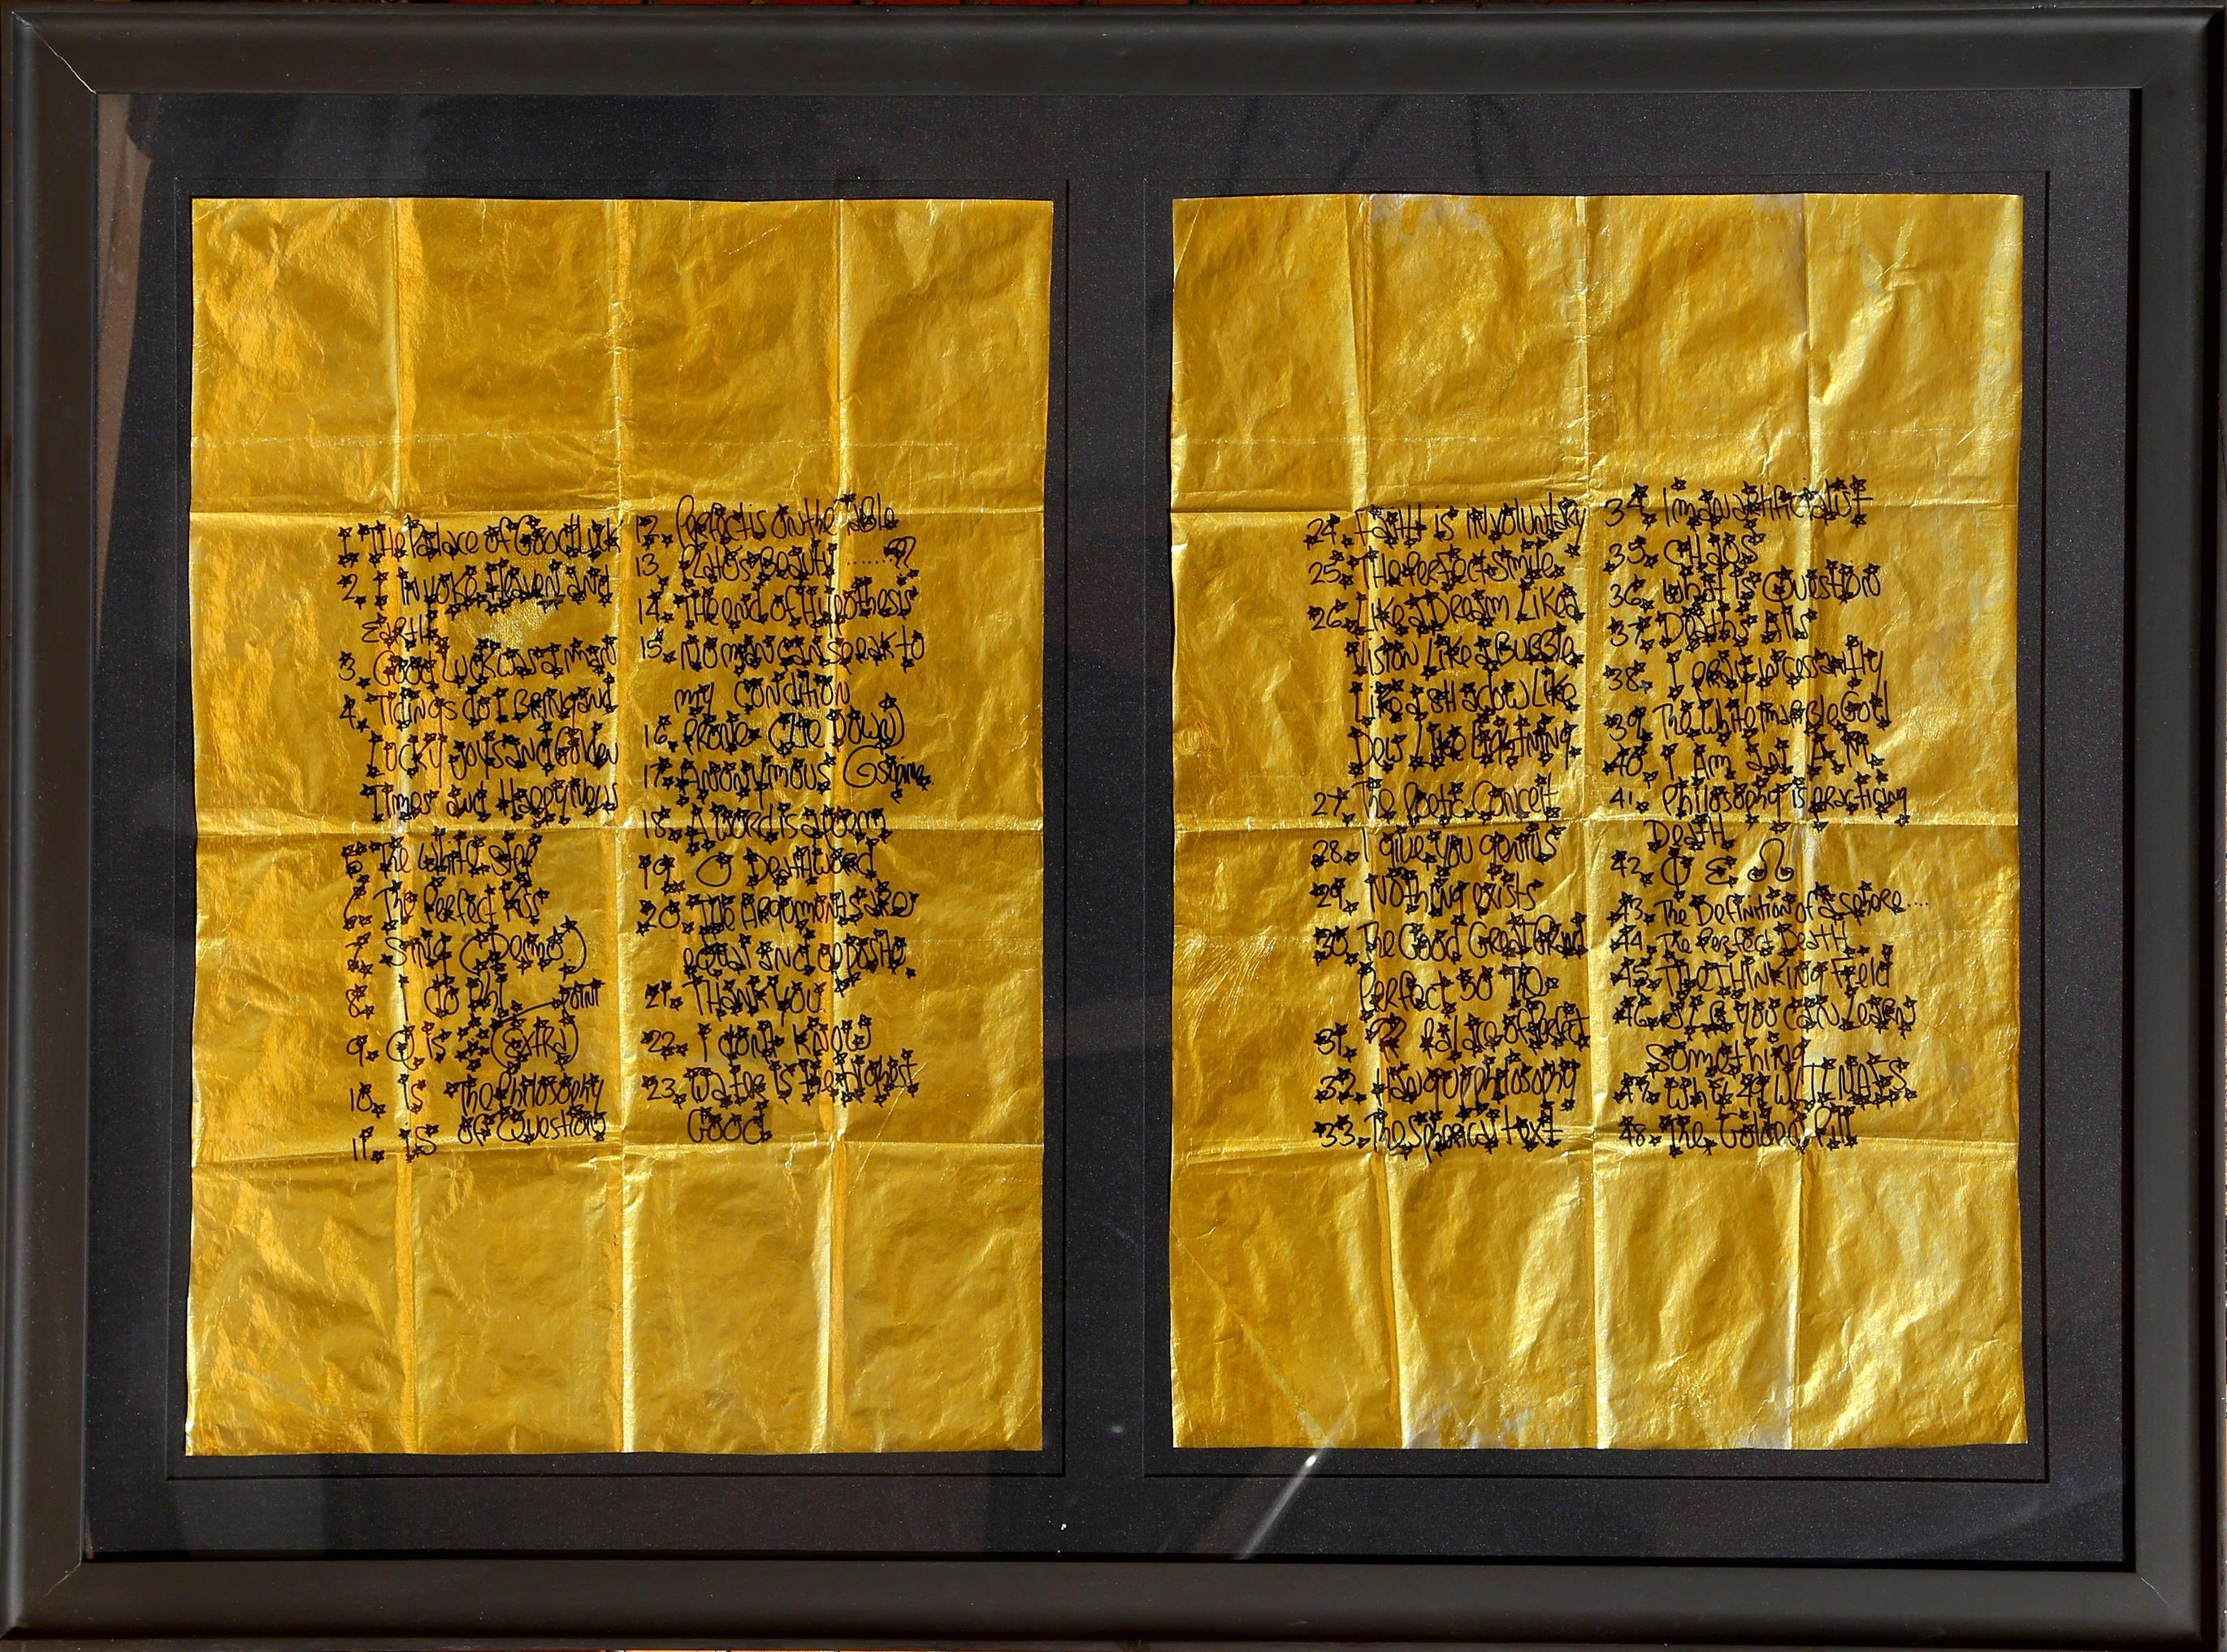 1. The Palace of Good Luck
2. I invoke Heaven and
Earth
3. Good Luck was a man
4. Tidings do I Bring and
Lucky Joys and Golden
Times and Happy News
5. The White Step
6. The Perfect Kiss
7. Sing (Demo)
8. I do Phi point
9. Q is (Extra)
10. is The Philosophy
11. is of Questions
12. Perfect is on the Table
13. Platos Beauty .......??
14. The end of Hypothesis
15. No man can speak to
my condition
16. Prone (The Down)
17. Anonymous
18. A word is a poem
19. O Deathword
20. The Arguments are
equal and opposite
21. Thank you
22. I dont know
23. Water is the Highest
Good
24. Faith is involuntary
25. The Perfect Smile
26. Like a Dream Like a
Vision Like a Bubble
Like a shadow Like
Dew Like Lightning
27. The Poetic Conceit
28. I give you genius
29. Nothing exists
30. The Good Great Grand
Perfect 30
31. ?? Palace of Perfect
32. Hang up philosophy
33. The Spherical text
34. Im an artificialist
35. CHaos
36. What is Question
37. Deaths
38. I pray incessantly
39. The White marble God
40. I Am
41. Philosophy is practicing
Death
42. Φ Ε Ω
43. The Definition of a sphere....
44. The Perfect Death
45. The THinking Field
46. you can Learn
Something
47. Why
48. The Golden Pill